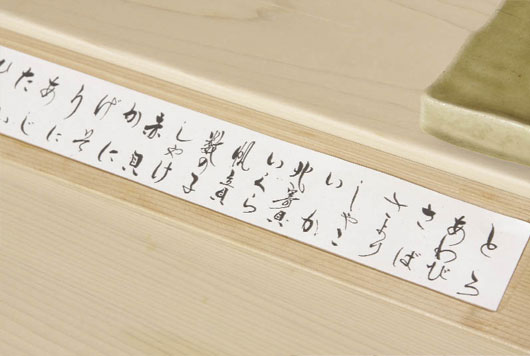 とろ
あわび
さば
さより
しゃこ
いか
北寄貝
いくら
帆立貝
数の子
しゃけ
赤貝
かに
げそ
うに
あじ
たい